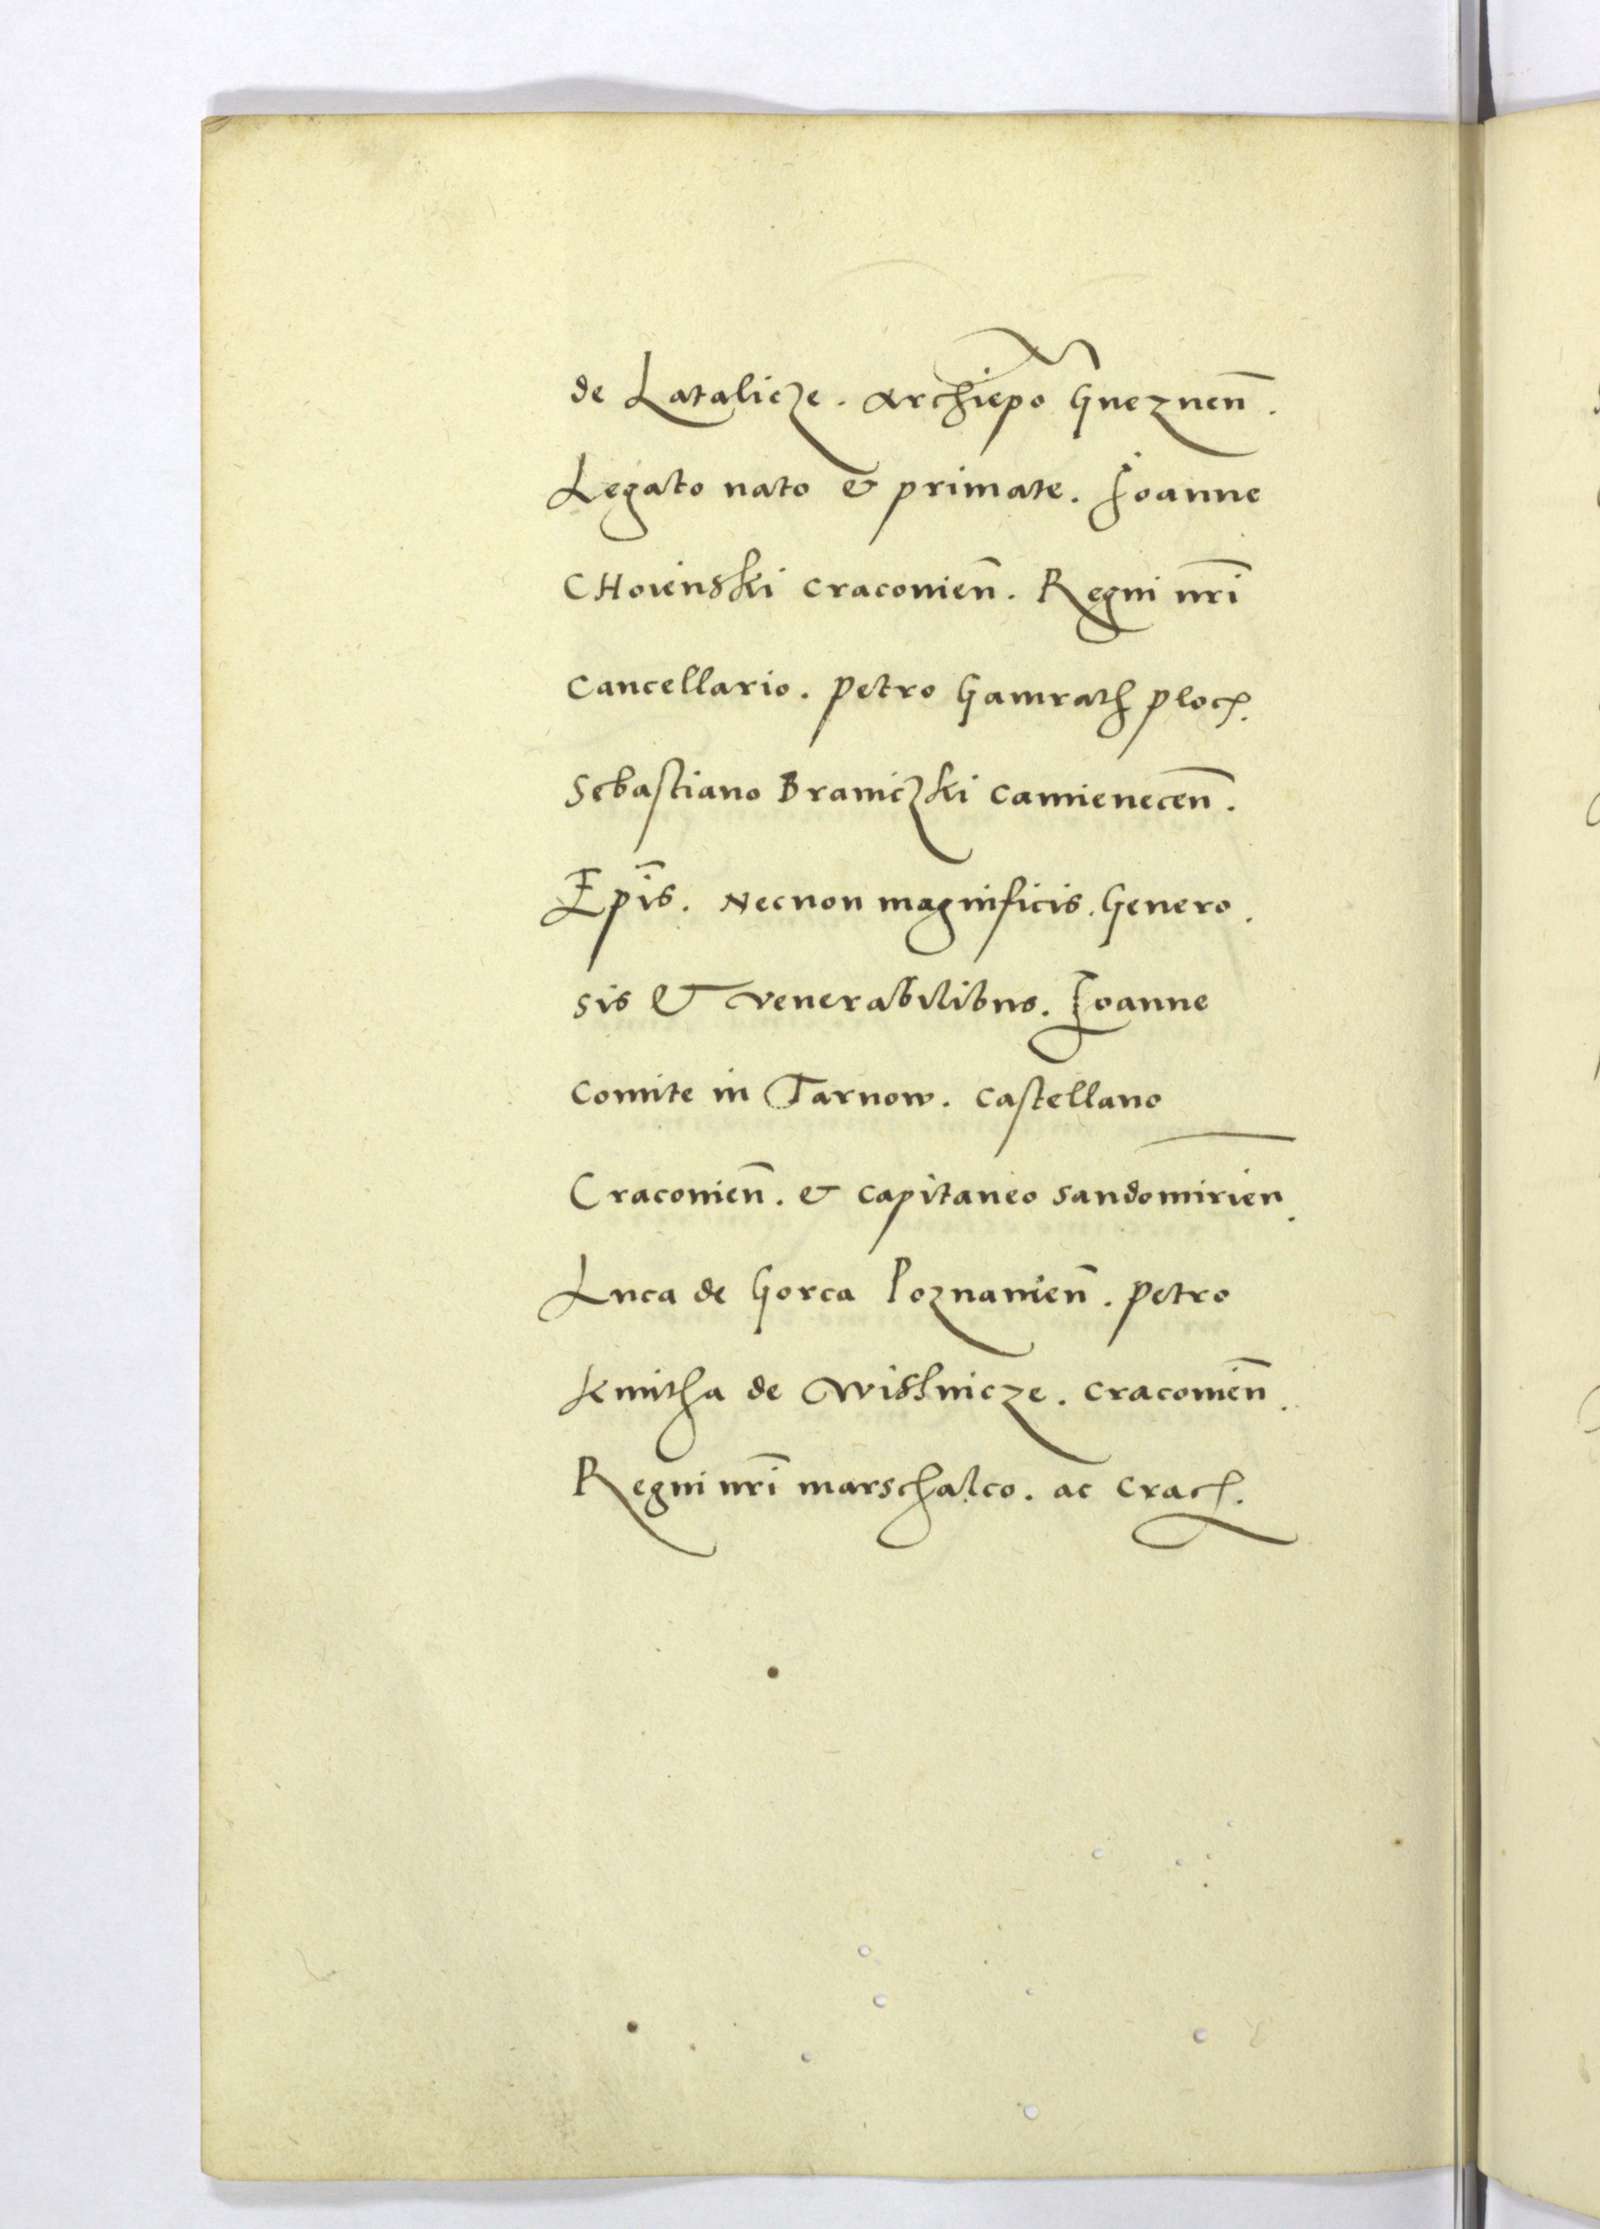 de Latalicze. Archiep̄o Gneznen̄.
Legato nato & primate. Ioanne
CHoienski Cracovien̄. Regni nr̄i
Cancellario. Petro Gamrath ploc̄.
Sebastiano Braniczki Camienecen̄.
Ep̄is. Necnon magnificis. Genero.
sis & venerabilibus. Ioanne
Comite in Tarnow. Castellano
Cracovien̄. & Capitaneo Sandomirien̄.
Luca de Gorca Poznanien̄. Petro
Kmitha de Wisnicze. Cracovien̄.
Regni nr̄i marschalco. ac Crac̄.